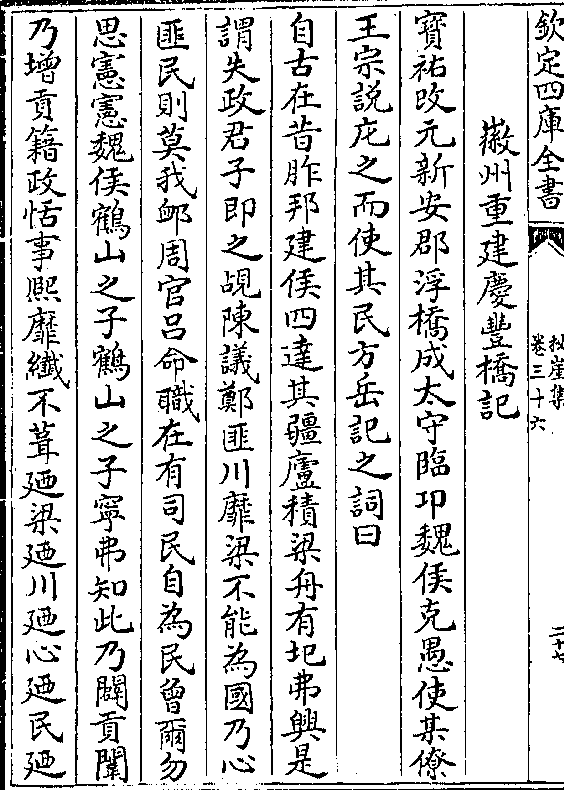 欽定四庫全書
秋崖集
卷三十六
二十七
徽州重建慶豐橋記
寶祐改元新安郡浮橋成太守臨卭魏侯克愚使某僚
王宗説庀之而使其民方岳記之詞曰
自古在昔胙邦建侯四達其疆廬積梁舟有圮弗興是
謂失政君子即之覘陳議鄭匪川靡梁不能為國乃心
匪民則莫我卹周官吕命職在有司民自為民曾爾勿
思憲憲魏侯鶴山之子鶴山之子寧弗知此乃闢貢闈
乃增貢籍政恬事熙靡纎不葺廼梁廼川廼心廼民廼